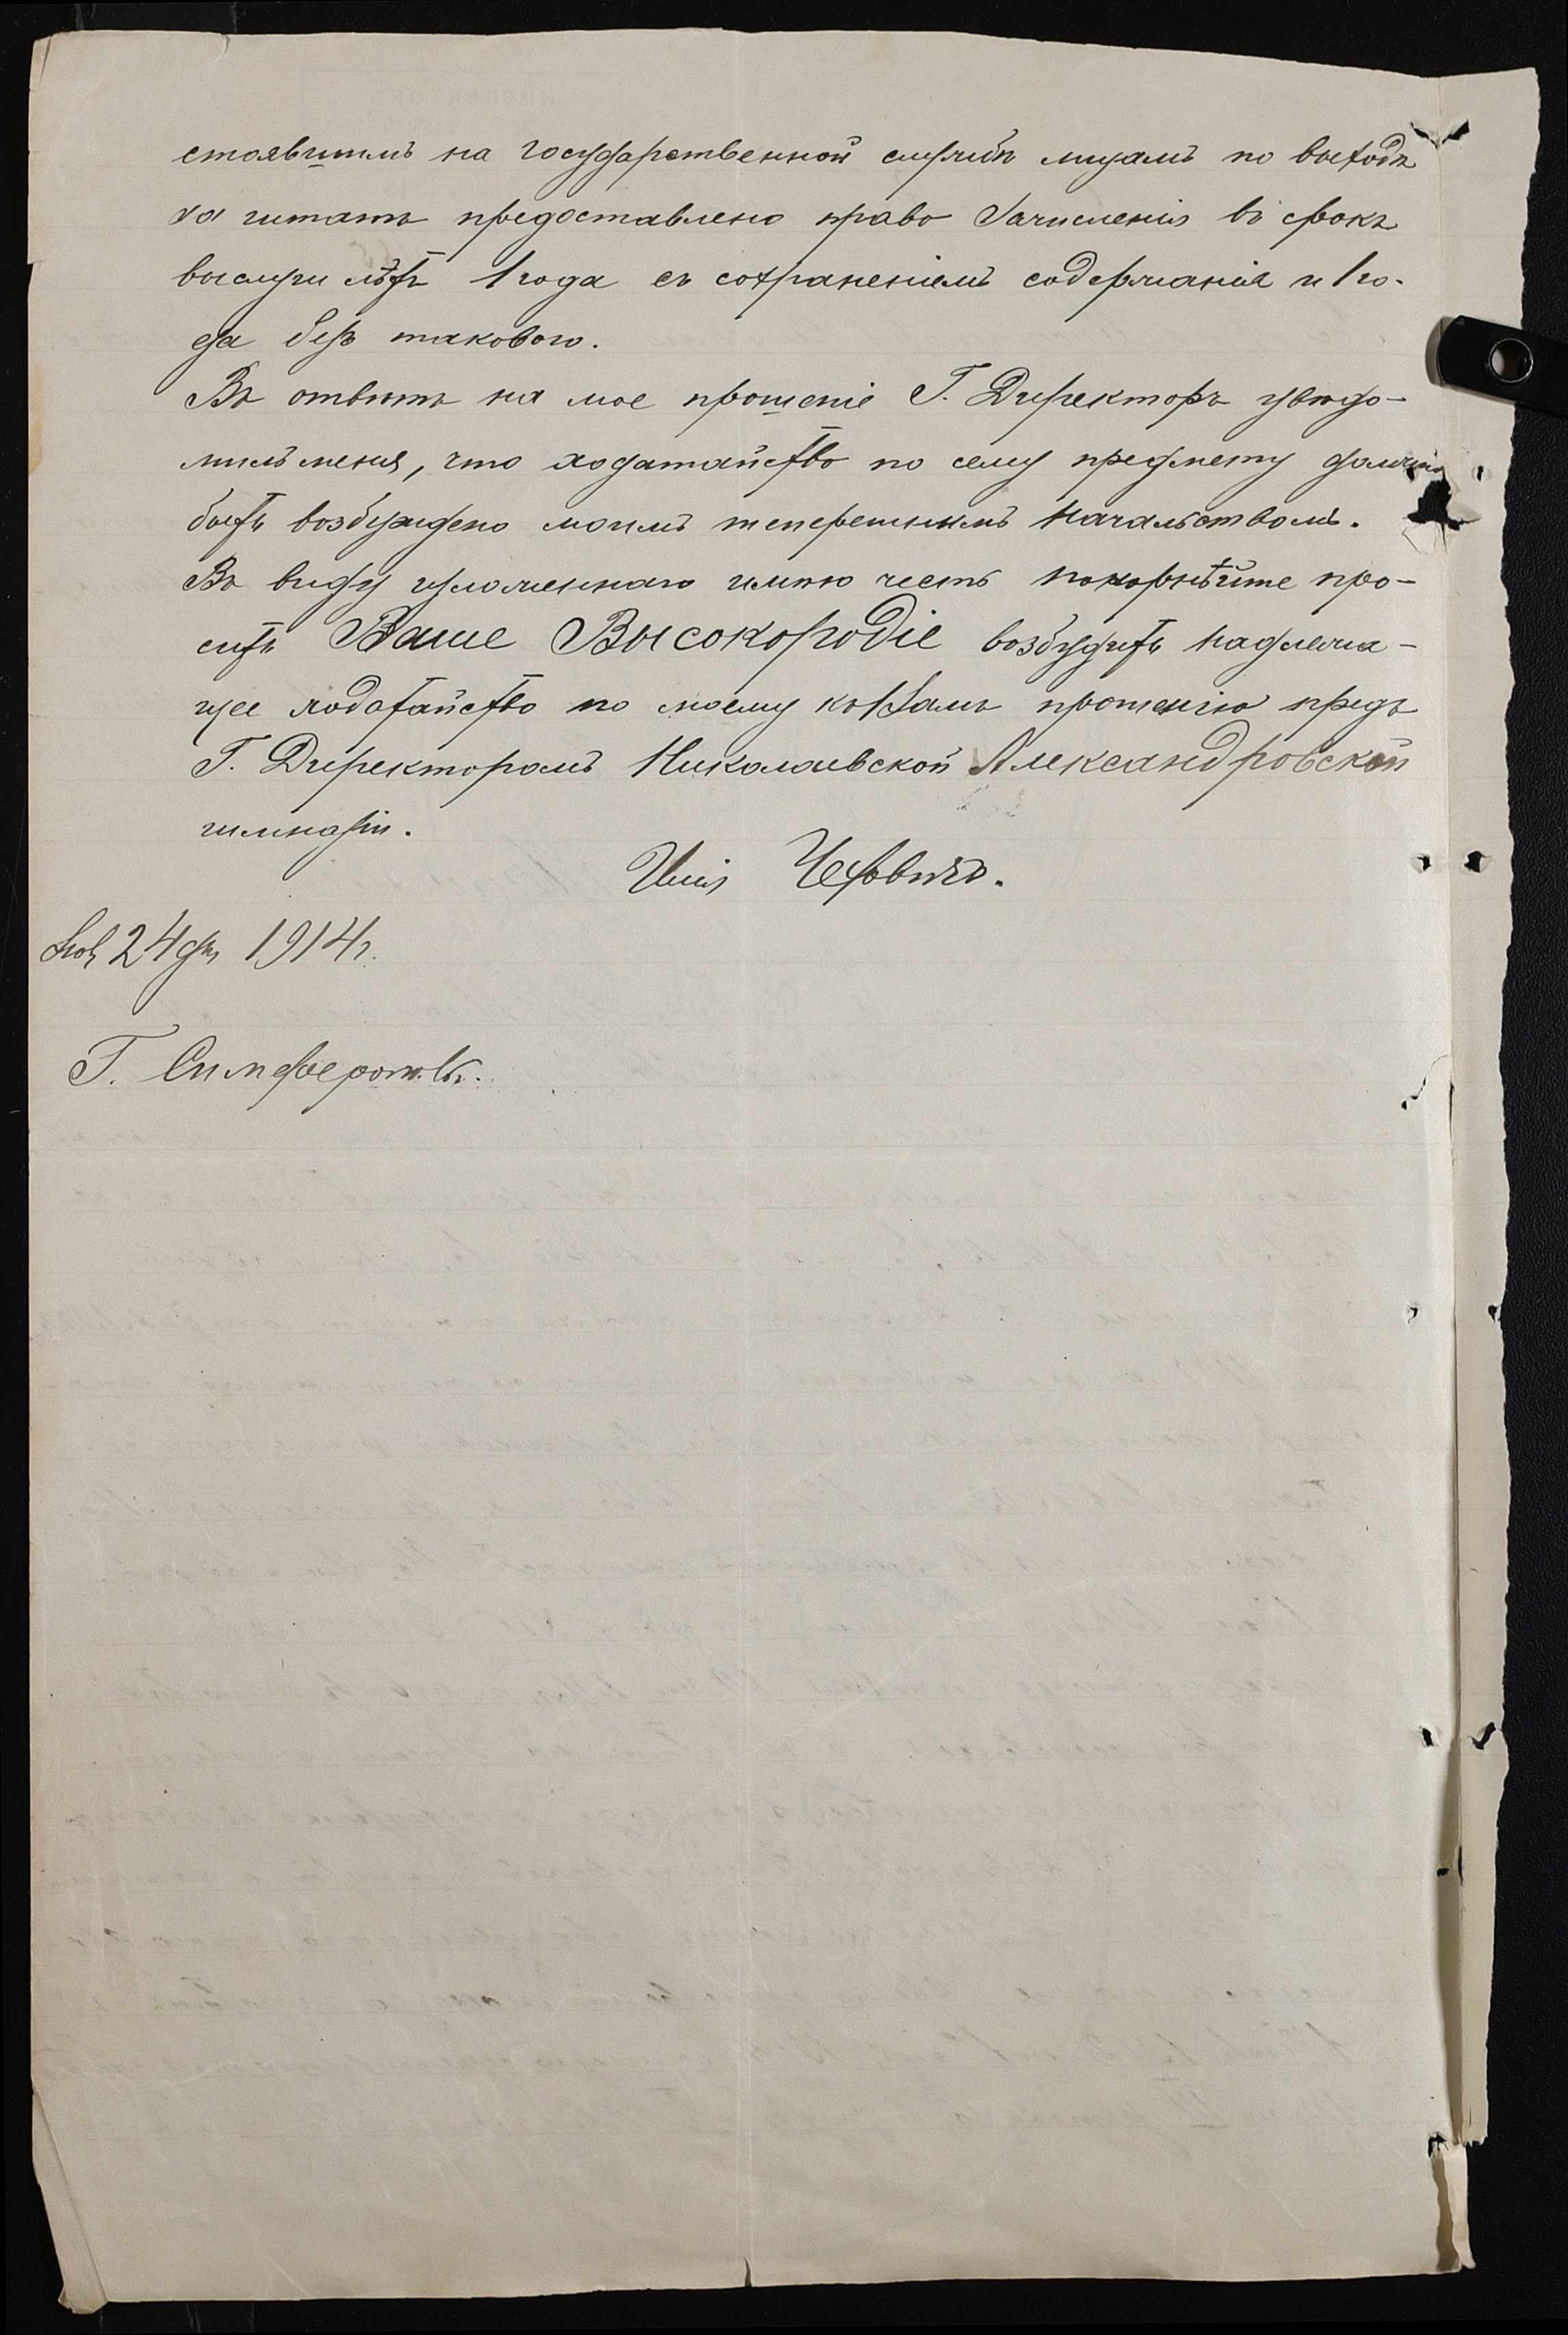 стоявшимъ на государственной службѣ лицамъ по выходѣ
за штатъ предоставлено право зачисленія въ срокъ
выслуги лѣтъ 1 года съ сохраненіемъ содержанія и 1 го-
да безъ такового.
Въ отвѣтъ на мое прошеніе Г. Директоръ увѣдо-
милъ меня, что ходатайство по сему предмету должно
быть возбуждено моимъ теперешнимъ начальствомъ.
Въ виду изложеннаго имѣю честь покорнѣйше про-
сить Ваше Высокородіе возбудить надлежа-
щее ходатайство по моему къ Вамъ прошенію предъ
Г. Директоромъ Николаевской Александровской
гимназіи.
24 дня 1914 г.
Г. Симферополь.